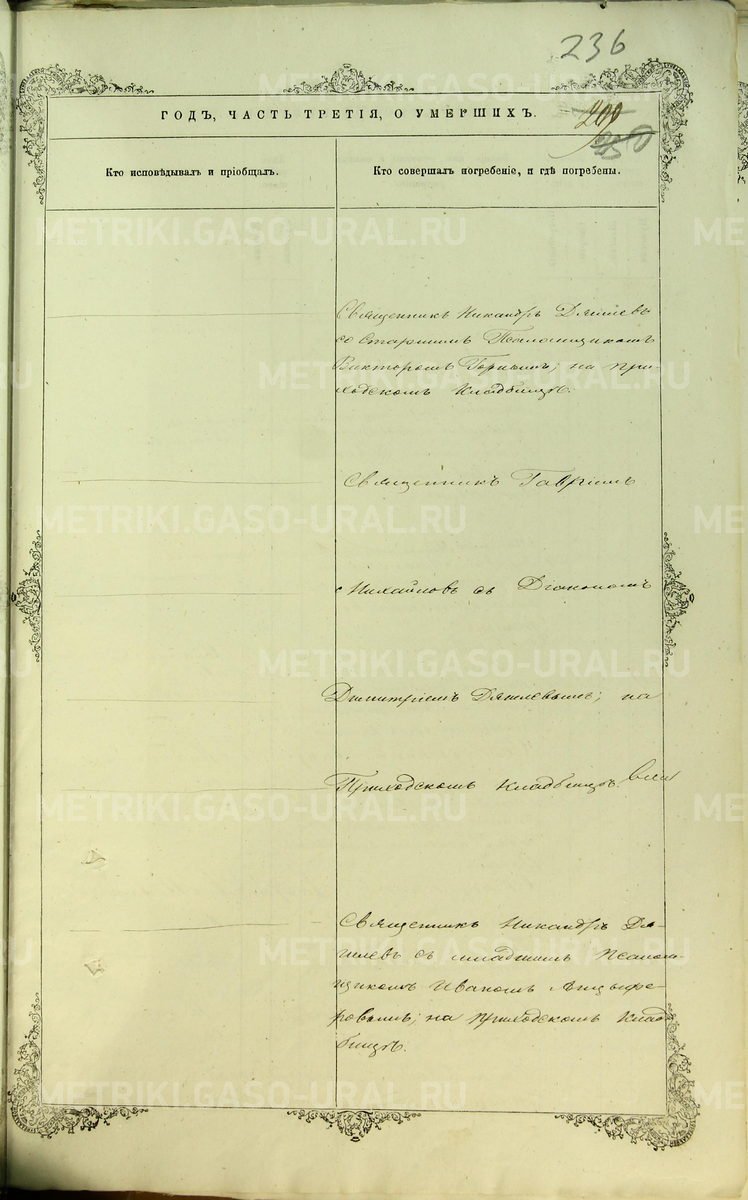 236
ГОДЪ, ЧАСТЬ ТРЕТІЯ, О УМЕРШИХЪ.
200
350
Кто исповѣдывалъ и пріобщалъ.
Кто совершалъ погребеніе, и гдѣ погребены.
Священникъ Никандръ Дягилевъ
со старшимъ Псаломщикомъ
Викторомъ Горнымъ; на при-
ходскомъ Кладбищѣ.
Священникъ Гавріилъ
Михайловъ съ Діакономъ
Димитріемъ Дягилевымъ; на
Приходскомъ Кладбищѣ.
Священникъ Никандръ Дя-
гилевъ съ младшимъ Псалом-
щикомъ Иваномъ Анцыфе-
ровымъ; на приходскомъ Клад-
бищѣ.
METRIKI.GASO-URAL.RU